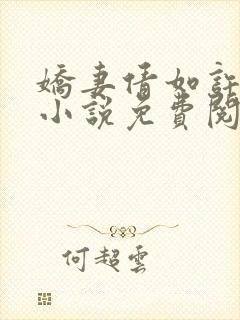 嬌妻情如許
小說免費閱
何超雲